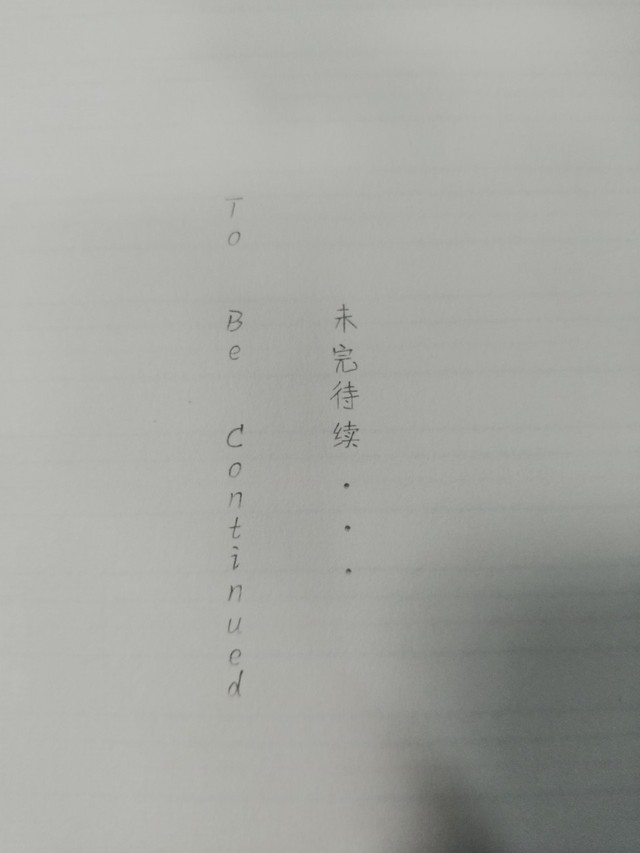 未完待续...
To Be Continued